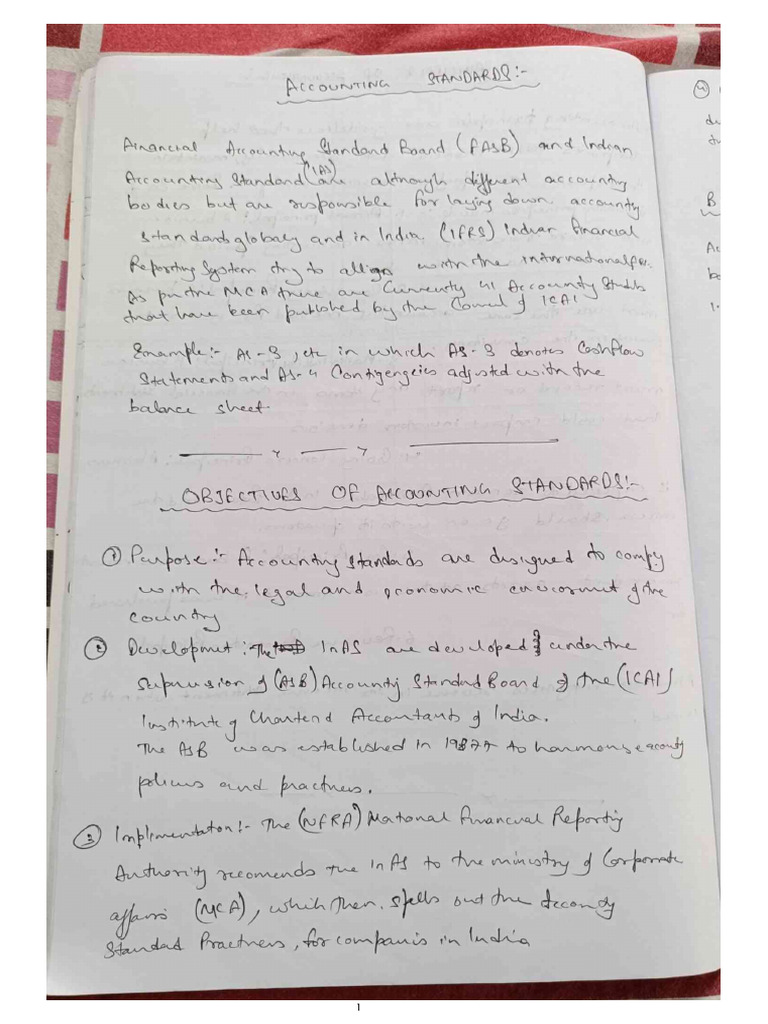 ACCOUNTING STANDARDS:-
Financial Accounting Standard Board (FASB) and Indian
Accounting Standard (IAS) are although different accounty
bodies but are responsible for laying down accounty
standards globaly and in India. (IFRS) Indian Financial
Reporting System try to allign with the international
As per the MCA there are Currently 41 Accounty Stads
that have been published by the Council of ICAI
Example:- AS-3, etc in which AS-3 denotes Cashflow
Statements and AS-4 Contigengies adjusted with the
balance sheet.
OBJECTIVES OF ACCOUNTING STANDARDS:-
① Purpose:- Accounting standads are designed to comply
with the legal and economic enviornment of the
country
② Development: InAS are developed under the
Supervision of (ASB) Accounty Standard Board of the (ICAI)
Institute of Chartered Accountants of India.
The ASB was established in to harmonise accounty
policies and practices.
③ Implementation:- The (NFRA) National Financial Reporting
Authority recomends the InAS to the ministry of Corporate
affairs (MCA), which then spells out the Accounty
Standad Practices, for companis in India
4
B
1